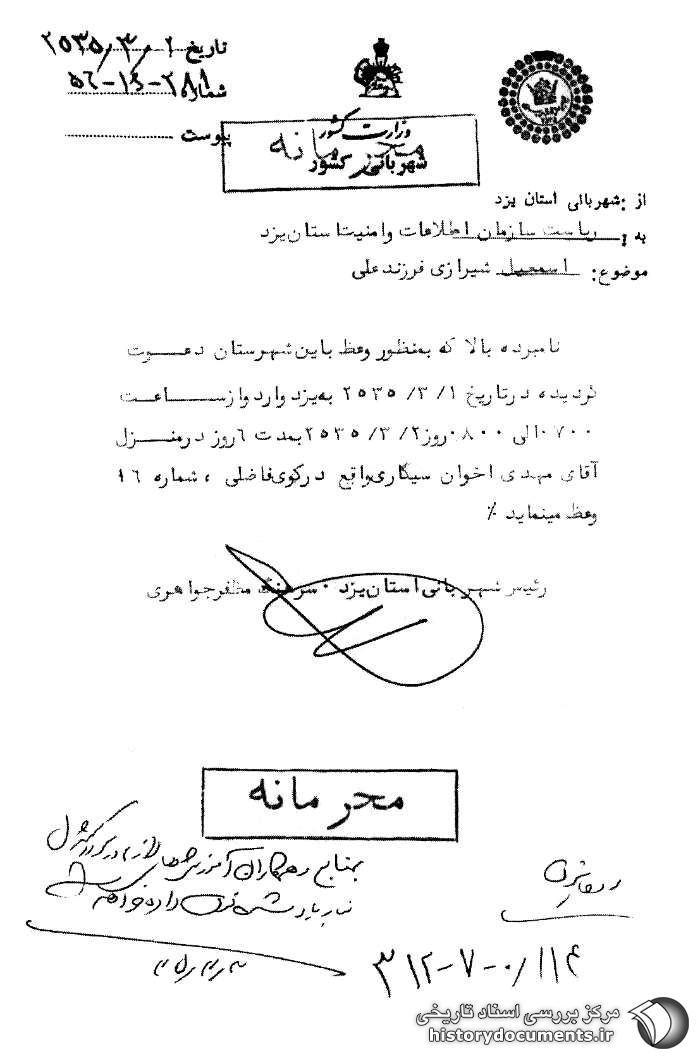 تاریخ ۲۵۳۵/۳/۲
شماره ۲۸۸-۱۴-۵۶
پیوست
وزارت کشور
شهربانی کشور
محرمانه
از : شهربانی استان یزد
به : ریاست سازمان اطلاعات و امنیت استان یزد
موضوع : اسمعیل شیرازی فرزند علی
نامبرده بالا که به‌منظور وعظ باین شهرستان دعوت
گردیده در تاریخ ۲۵۳۵/۳/۱ به یزد وارد و از ساعت
۰۷۰۰ الی ۰۸۰۰ روز ۲۵۳۵/۳/۲ بمدت ٦ روز در منزل
آقای مهدی اخوان سیگاری واقع در کوی فاضلی ، شماره ۱٦
وعظ مینماید ٪
رئیس شهربانی استان یزد ۰ سرهنگ مظفر جواهری
محرمانه
بمنابع و همکاران آموزش های لازم در مورد کنترل
داده
۳۱۲-۷-۰/۱۱۴
مرکز بررسی اسناد تاریخی
historydocuments.ir